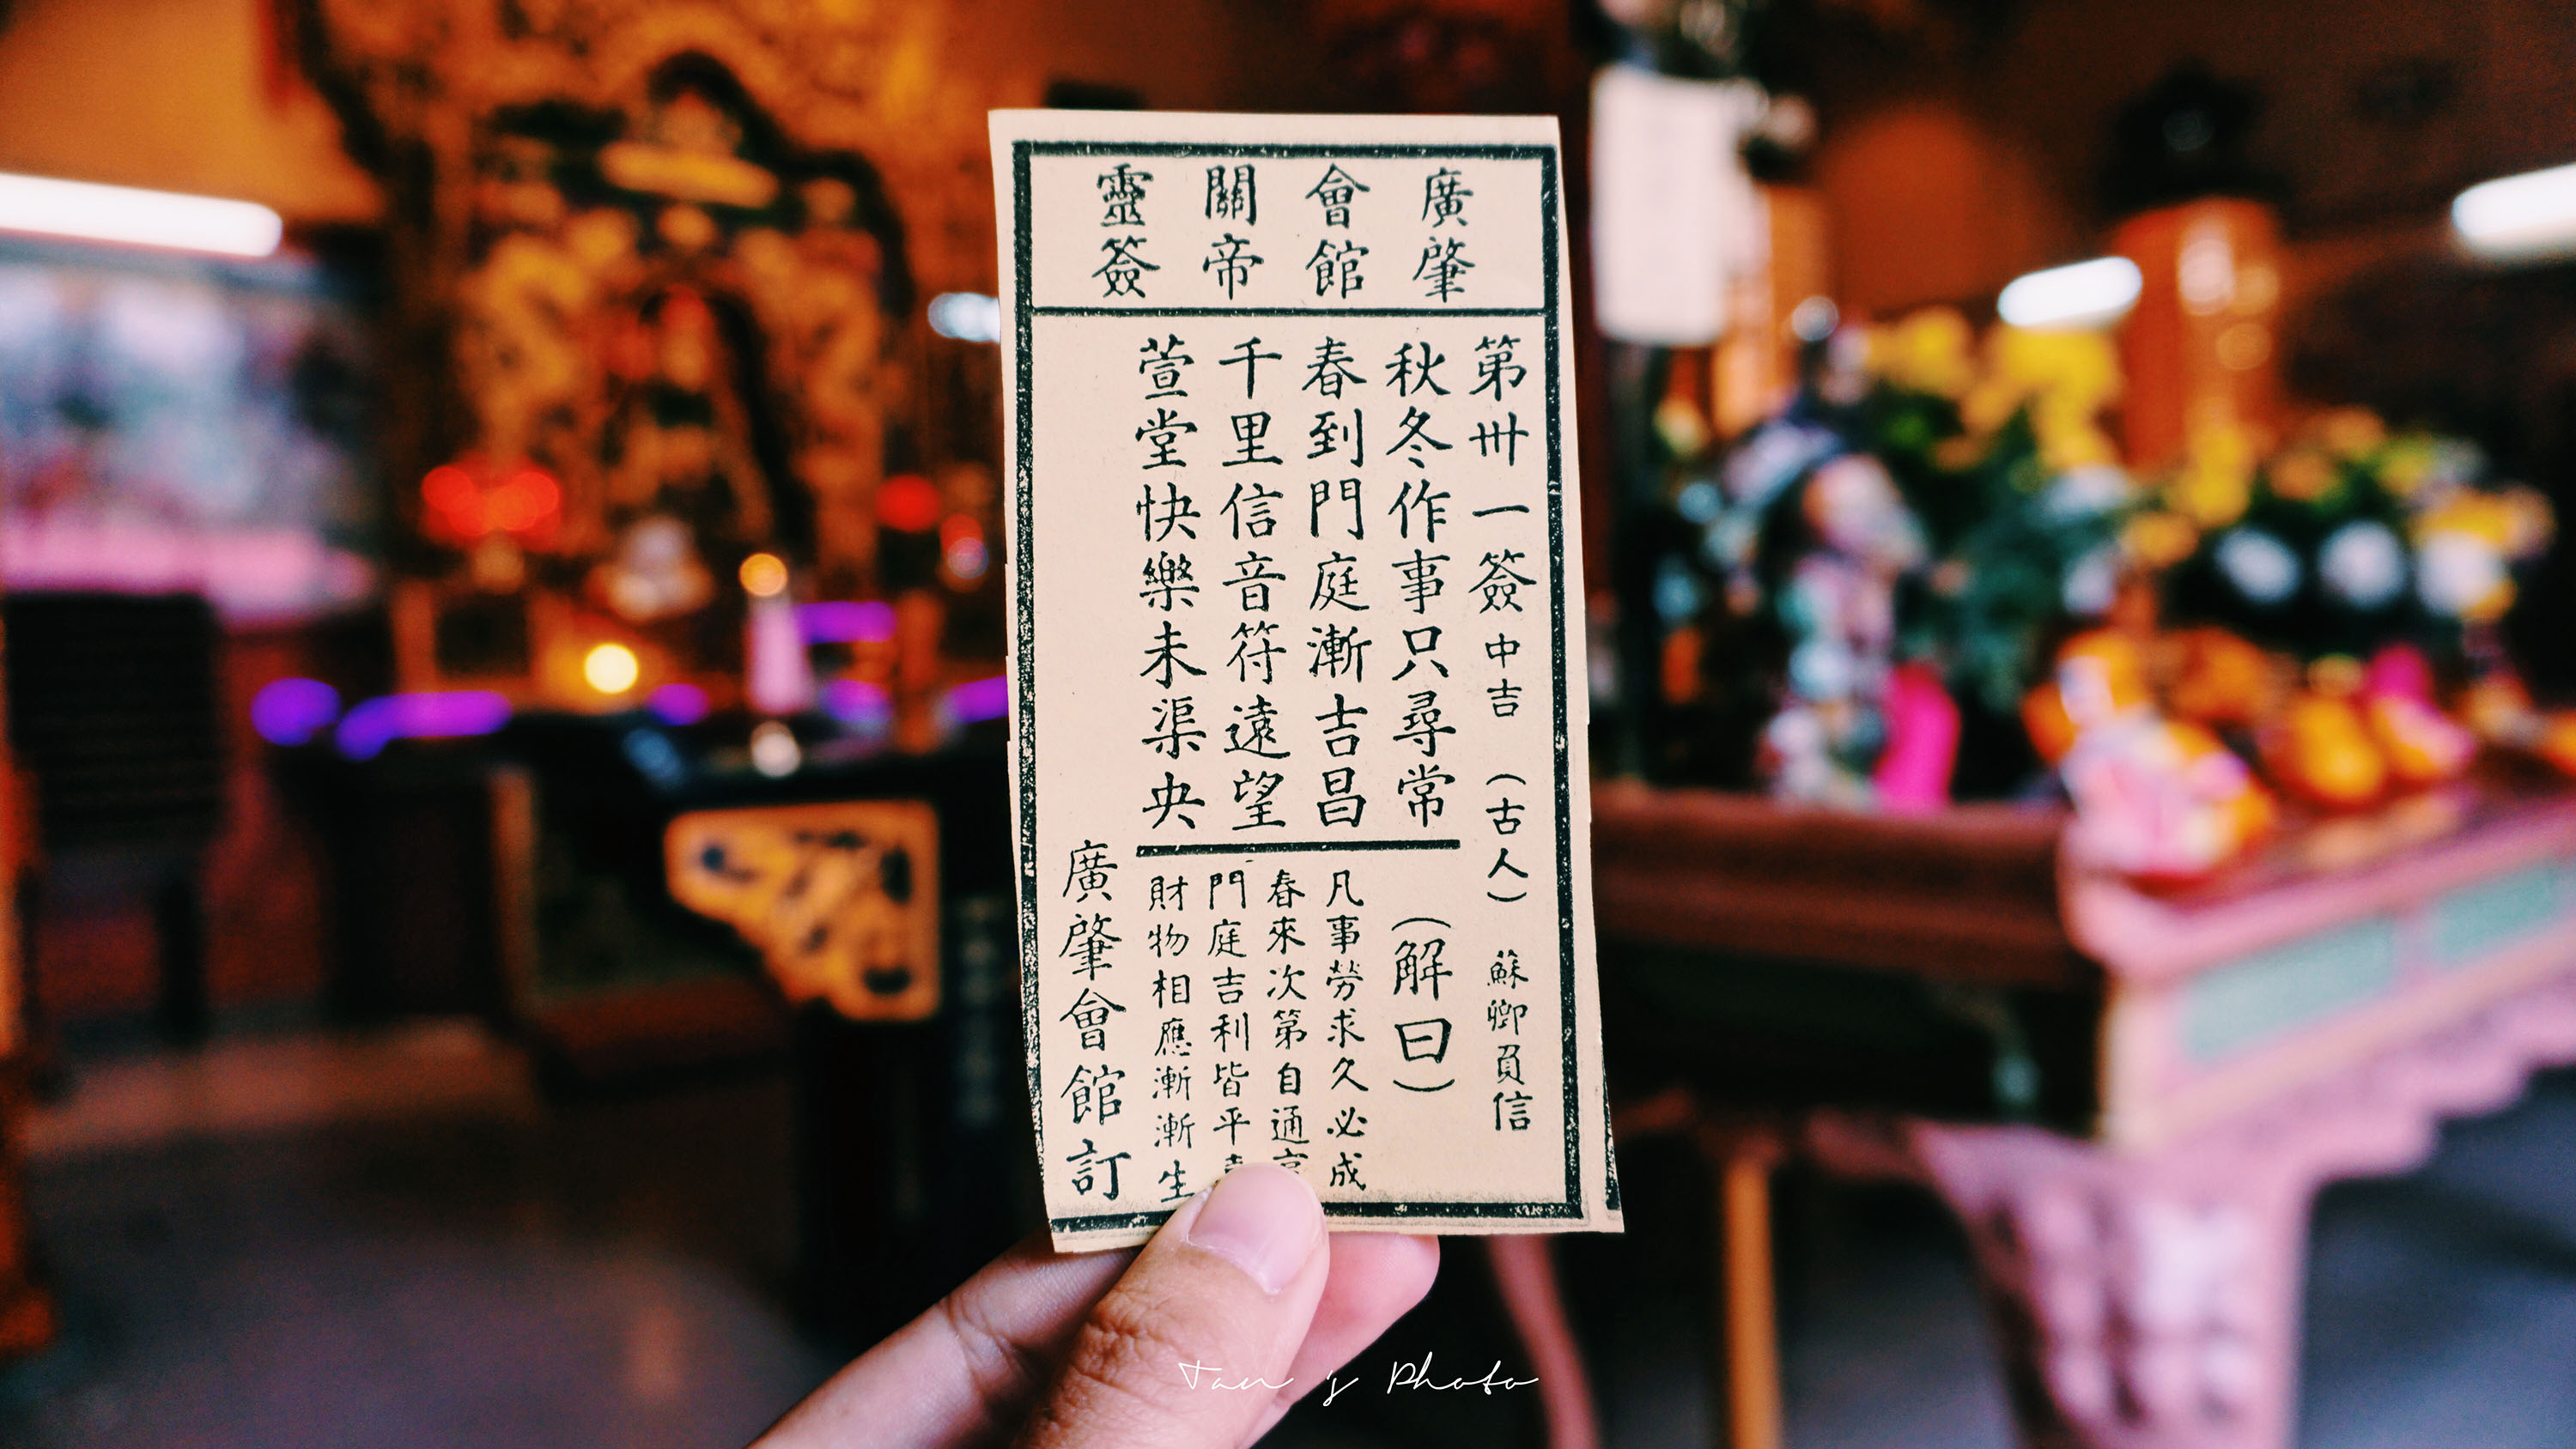 廣肇
會館
關帝
靈簽
第卅一簽 中吉 （古人） 蘇卿負信
秋冬作事只尋常
春到門庭漸吉昌
千里信音符遠望
萱堂快樂未渠央
（解曰）
凡事勞求久必成
春來次第自通亨
門庭吉利皆平
財物相應漸漸生
廣肇會館訂
Tan's Photo